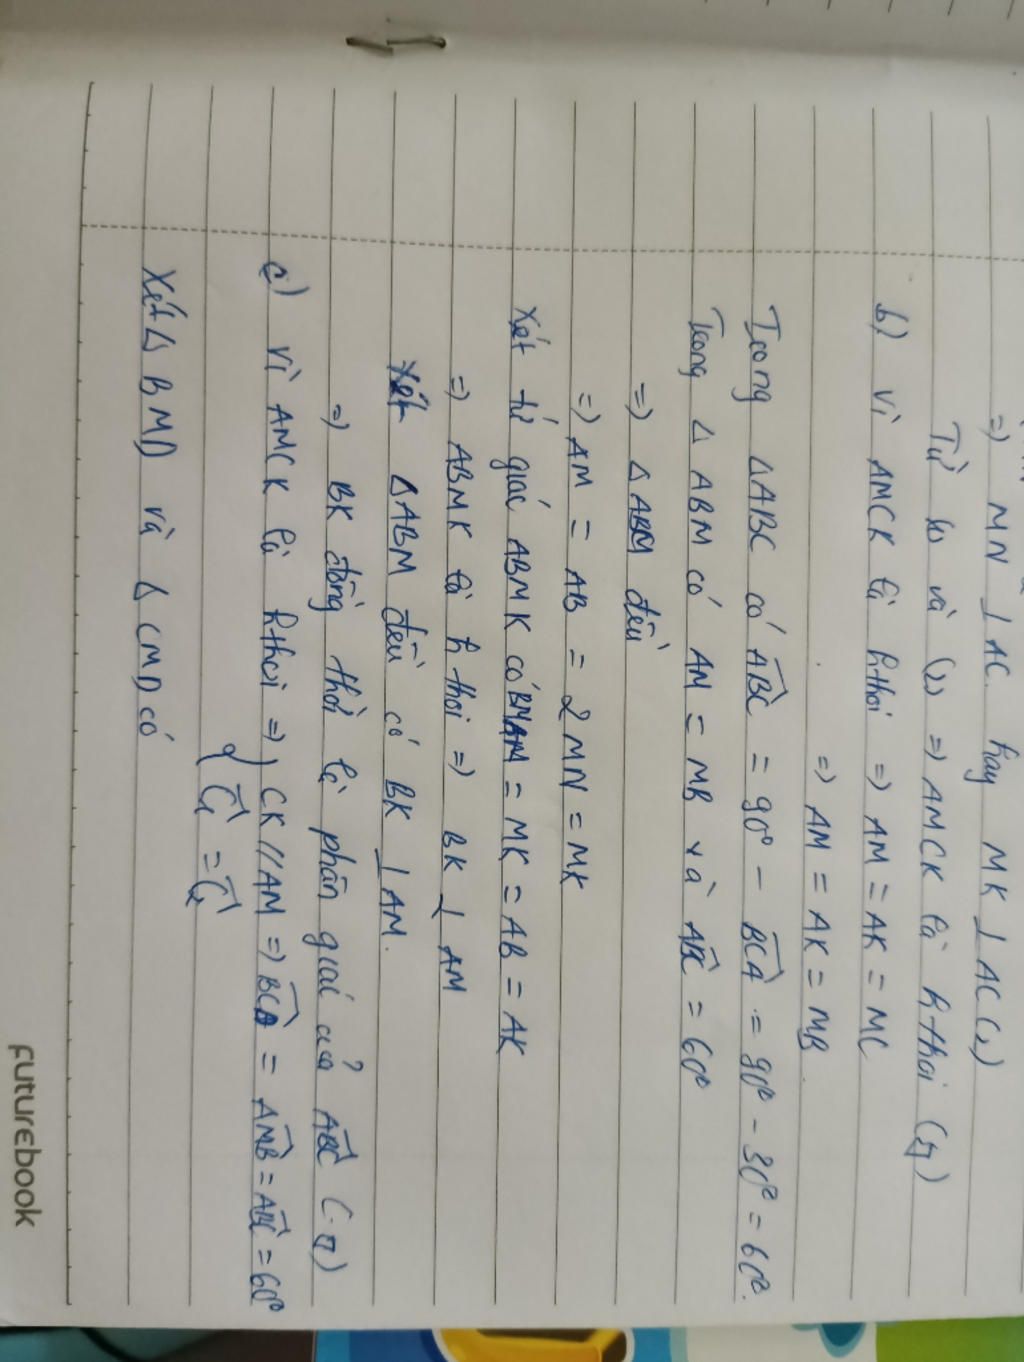 => MN ⊥ AC hay MK ⊥ AC (2)
Từ (1) và (2) => AMCK là h.thoi
b) Vì AMCK là h.thoi => AM = AK = MC
=> AM = AK = MB
Trong ΔABC có ABC = 90° - BCA = 90° - 30° = 60°.
Trong Δ ABM có AM = MB và ABC = 60°
=> Δ ABM đều
=> AM = AB = 2MN = MK
Xét tứ giác ABMK có BM = MK = AB = AK
=> ABMK là h.thoi => BK ⊥ AM
Xét ΔABM đều có BK ⊥ AM.
=> BK đồng thời là phân giác của ABC
c) Vì AMCK là h.thoi => CK // AM => BCD = AMB = ABC = 60°
C1 = C2
Xét Δ BMD và Δ CMD có
futurebook